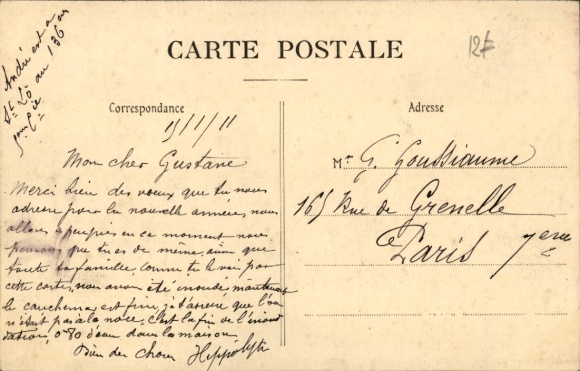 André est a
St Lô au 136 eme
9eme Cie
CARTE POSTALE
12F
Correspondance
Adresse
15/1/11
Mon cher Gustave
Merci bien des voeux que tu nous
adresse pour la nouvelle année, nous
allons à peu près en ce moment nous
pensons que tu es de même, ainsi que
toute ta famille, comme tu le vois par
cette carte, nous avons été inondés maintenant
le cauchemar est fini, je t'assure que l'on
n'était pas à la noce, c'est la fin de l'inon
dation, 0m80 d'eau dans la maison
Bien des choses Hippolyte
Mr G. Goussiaume
165 Rue de Grenelle
Paris 7eme